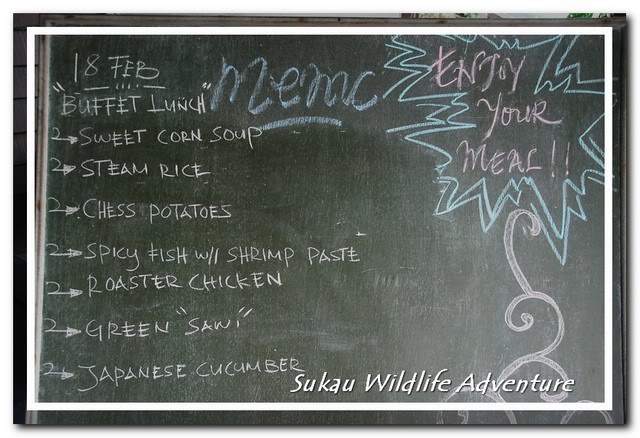 18 FEB
"BUFFET LUNCH"
SWEET CORN SOUP
STEAM RICE
CHESS POTATOES
SPICY FISH W// SHRIMP PASTE
ROASTER CHICKEN
GREEN "SAWI"
JAPANESE CUCUMBER
memo
ENJOY
YOUR
MEAL!!
Sukau Wildlife Adventure